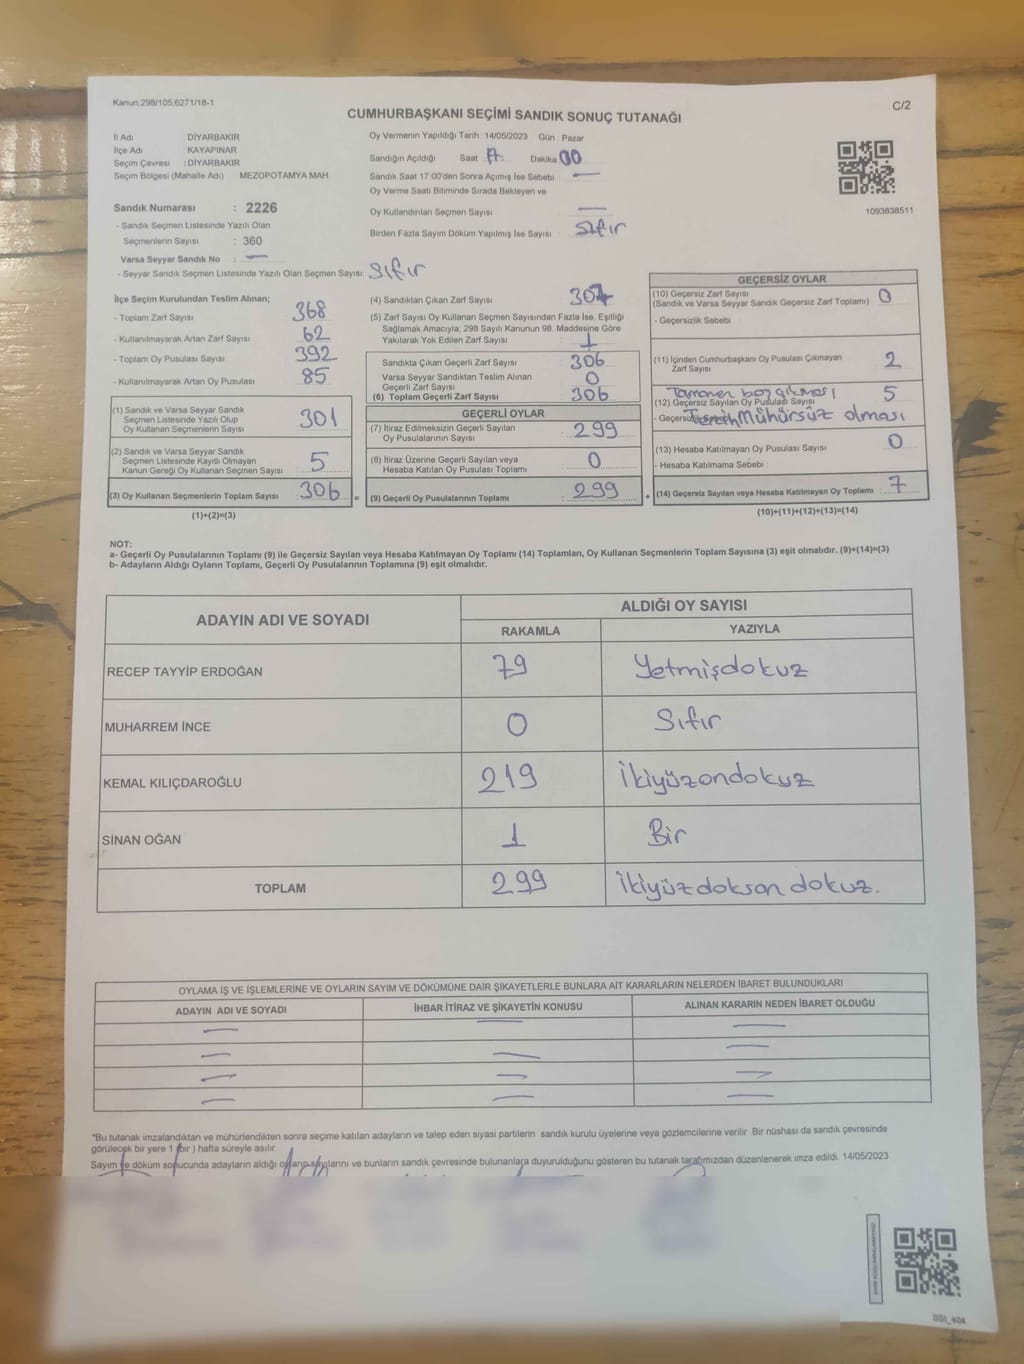 Kanun.298/105,6271/18-1
C/2
CUMHURBAŞKANI SEÇİMİ SANDIK SONUÇ TUTANAĞI
İl Adı DİYARBAKIR
İlçe Adı KAYAPINAR
Seçim Çevresi : DİYARBAKIR
Seçim Bölgesi (Mahalle Adı) MEZOPOTAMYA MAH
Sandık Numarası : 2226
- Sandık Seçmen Listesinde Yazılı Olan
Seçmenlerin Sayısı : 360
Varsa Seyyar Sandık No : —
- Seyyar Sandık Seçmen Listesinde Yazılı Olan Seçmen Sayısı: Sıfır
Oy Vermenin Yapıldığı Tarih :14/05/2023 Gün : Pazar
Sandığın Açıldığı Saat 17: Dakika 00
Sandık Saat 17:00'den Sonra Açımış İse Sebebi —
Oy Verme Saati Bitiminde Sırada Bekleyen ve
Oy Kullandırılan Seçmen Sayısı —
Birden Fazla Sayım Döküm Yapılmış İse Sayısı : Sıfır
1093838511
İlçe Seçim Kurulundan Teslim Alınan;
- Toplam Zarf Sayısı : 368
- Kullanılmayarak Artan Zarf Sayısı : 62
- Toplam Oy Pusulası Sayısı : 392
- Kullanılmayarak Artan Oy Pusulası : 85
(1) Sandık ve Varsa Seyyar Sandık
Seçmen Listesinde Yazılı Olup
Oy Kullanan Seçmenlerin Sayısı : 301
(2) Sandık ve Varsa Seyyar Sandık
Seçmen Listesinde Kayıtlı Olmayan
Kanun Gereği Oy Kullanan Seçmen Sayısı : 5
(3) Oy Kullanan Seçmenlerin Toplam Sayısı : 306
(1)+(2)=(3)
(4) Sandıktan Çıkan Zarf Sayısı : 307
(5) Zarf Sayısı Oy Kullanan Seçmen Sayısından Fazla İse, Eşitliği
Sağlamak Amacıyla; 298 Sayılı Kanunun 98. Maddesine Göre
Yakılarak Yok Edilen Zarf Sayısı : 1
Sandıkta Çıkan Geçerli Zarf Sayısı : 306
Varsa Seyyar Sandıktan Teslim Alınan
Geçerli Zarf Sayısı : 0
(6) Toplam Geçerli Zarf Sayısı : 306
GEÇERLİ OYLAR
(7) İtiraz Edilmeksizin Geçerli Sayılan
Oy Pusulalarının Sayısı : 299
(8) İtiraz Üzerine Geçerli Sayılan veya
Hesaba Katılan Oy Pusulası Toplamı : 0
= (9) Geçerli Oy Pusulalarının Toplamı : 299
GEÇERSİZ OYLAR
(10) Geçersiz Zarf Sayısı : 0
(Sandık ve Varsa Seyyar Sandık Geçersiz Zarf Toplamı)
- Geçersizlik Sebebi :
(11) İçinden Cumhurbaşkanı Oy Pusulası Çıkmayan
Zarf Sayısı : 2
Tamamen boş çıkması
(12) Geçersiz Sayılan Oy Pusulası Sayısı 5
- Geçersiz Tercih Mühürsüz olması
(13) Hesaba Katılmayan Oy Pusulası Sayısı : 0
- Hesaba Katılmama Sebebi :
+ (14) Geçersiz Sayılan veya Hesaba Katılmayan Oy Toplamı : 7
(10)+(11)+(12)+(13)=(14)
NOT:
a- Geçerli Oy Pusulalarının Toplamı (9) ile Geçersiz Sayılan veya Hesaba Katılmayan Oy Toplamı (14) Toplamları, Oy Kullanan Seçmenlerin Toplam Sayısına (3) eşit olmalıdır. (9)+(14)=(3)
b- Adayların Aldığı Oyların Toplamı, Geçerli Oy Pusulalarının Toplamına (9) eşit olmalıdır.
ADAYIN ADI VE SOYADI ALDIĞI OY SAYISI
RAKAMLA YAZIYLA
RECEP TAYYİP ERDOĞAN 79 Yetmişdokuz
MUHARREM İNCE 0 Sıfır
KEMAL KILIÇDAROĞLU 219 İkiyüzondokuz
SİNAN OĞAN 1 Bir
TOPLAM 299 İkiyüzdoksan dokuz.
OYLAMA İŞ VE İŞLEMLERİNE VE OYLARIN SAYIM VE DÖKÜMÜNE DAİR ŞİKAYETLERLE BUNLARA AİT KARARLARIN NELERDEN İBARET BULUNDUKLARI
ADAYIN ADI VE SOYADI İHBAR İTİRAZ VE ŞİKAYETİN KONUSU ALINAN KARARIN NEDEN İBARET OLDUĞU
— — —
— — —
— — —
— — —
*Bu tutanak imzalandıktan ve mühürlendikten sonra seçime katılan adayların ve talep eden siyasi partilerin sandık kurulu üyelerine veya gözlemcilerine verilir. Bir nüshası da sandık çevresinde
görülecek bir yere 1 ( bir ) hafta süreyle asılır.
Sayım ve döküm sonucunda adayların aldığı oyların sayılarını ve bunların sandık çevresinde bulunanlara duyurulduğunu gösteren bu tutanak tarafımızdan düzenlenerek imza edildi. 14/05/2023